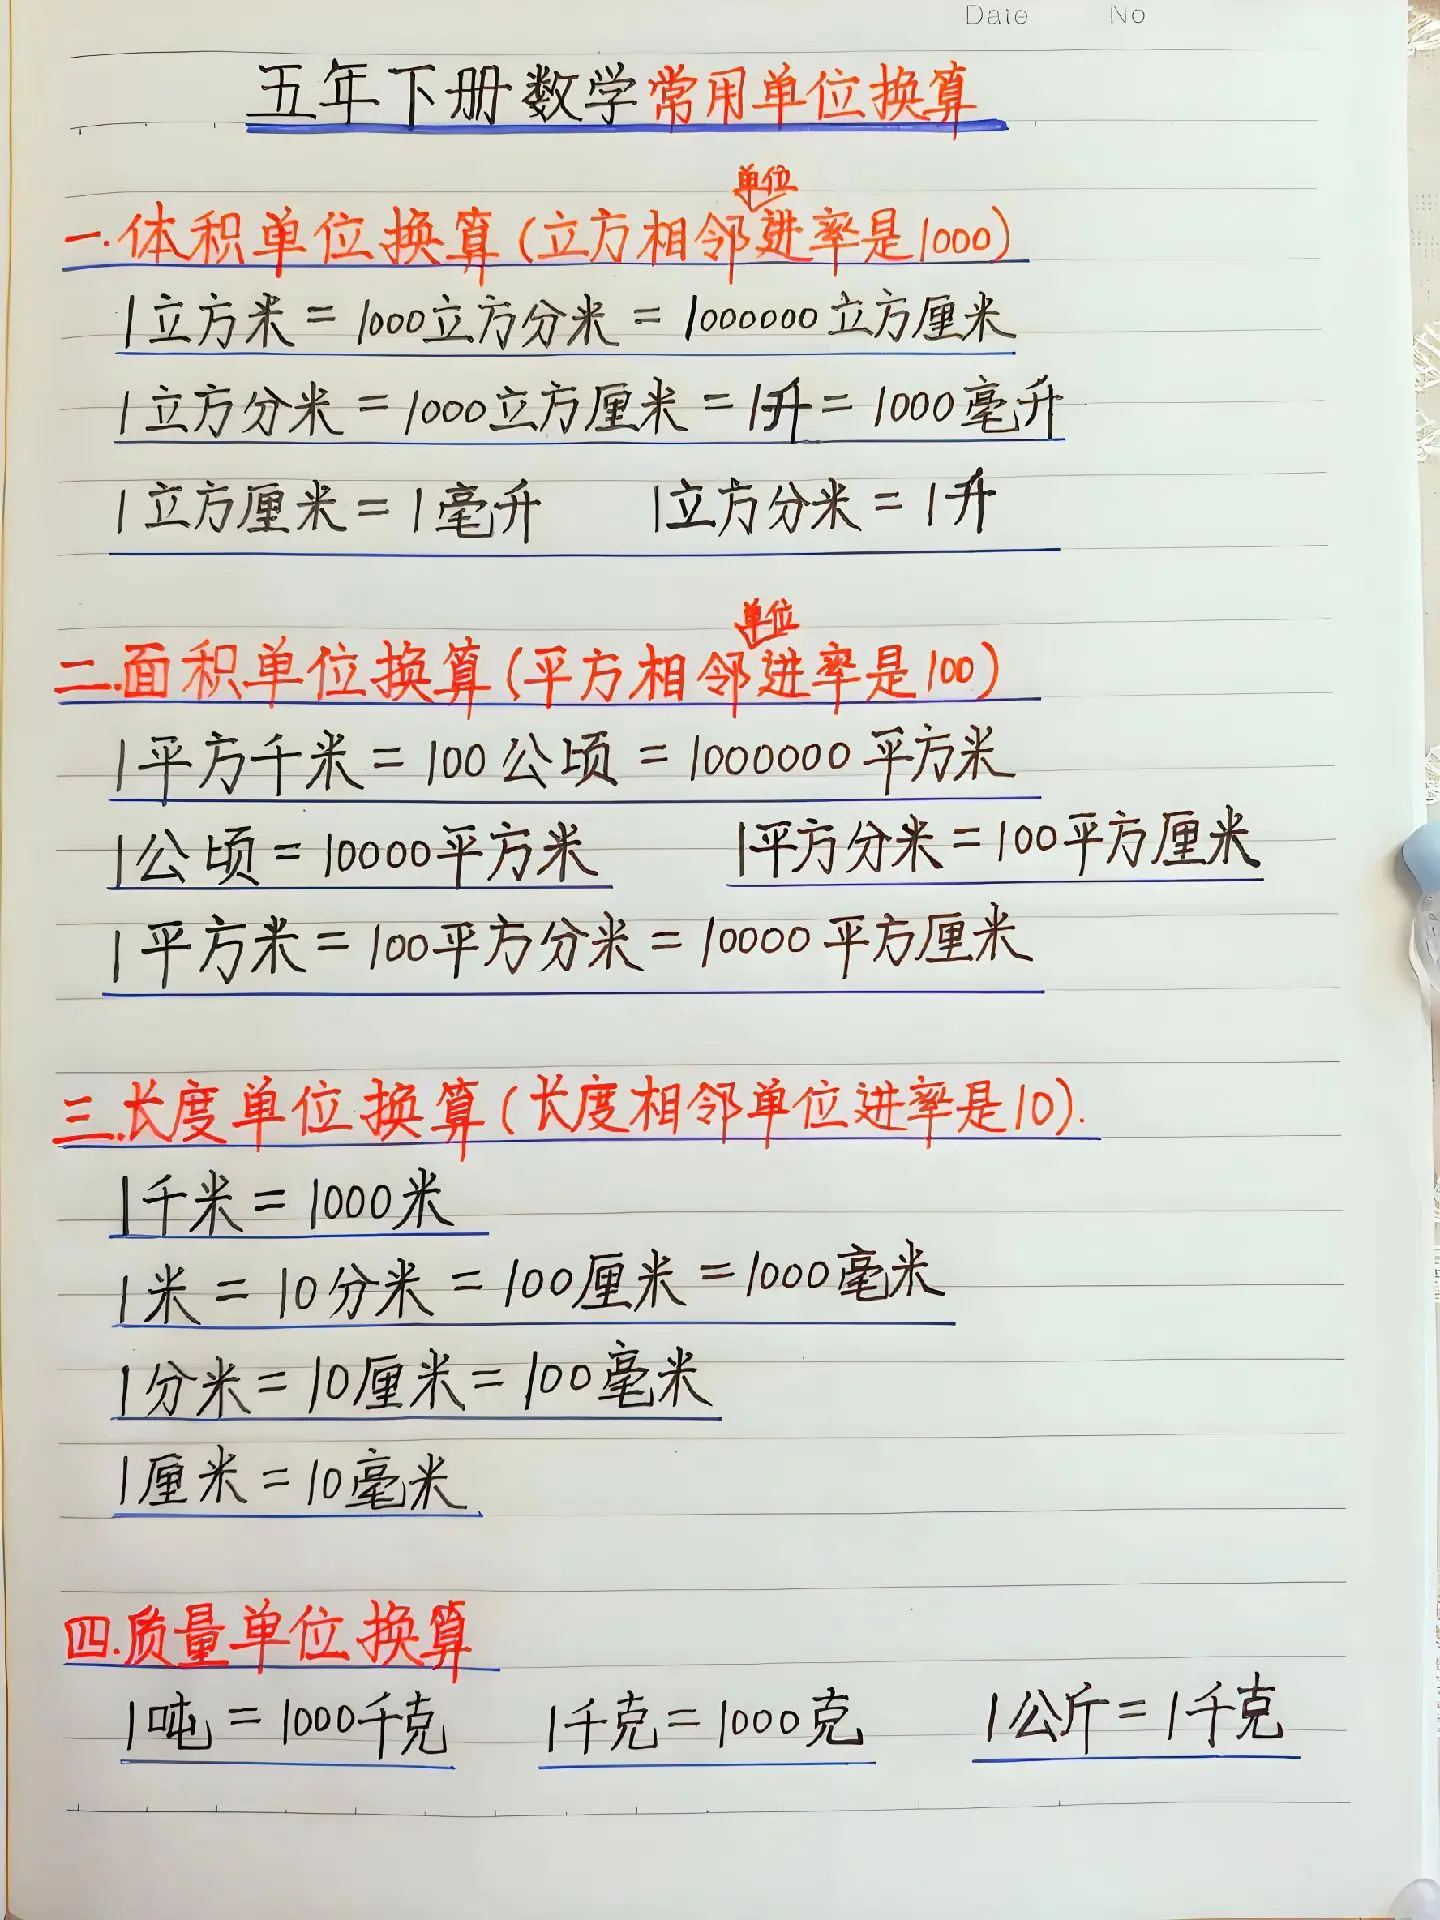 Date No
五年下册数学常用单位换算
单位
一.体积单位换算(立方相邻进率是1000)
1立方米=1000立方分米=1000000立方厘米
1立方分米=1000立方厘米=1升=1000毫升
1立方厘米=1毫升 1立方分米=1升
单位
二.面积单位换算(平方相邻进率是100)
1平方千米=100公顷=1000000平方米
1公顷=10000平方米 1平方分米=100平方厘米
1平方米=100平方分米=10000平方厘米
三.长度单位换算(长度相邻单位进率是10).
1千米=1000米
1米=10分米=100厘米=1000毫米
1分米=10厘米=100毫米
1厘米=10毫米
四.质量单位换算
1吨=1000千克 1千克=1000克 1公斤=1千克